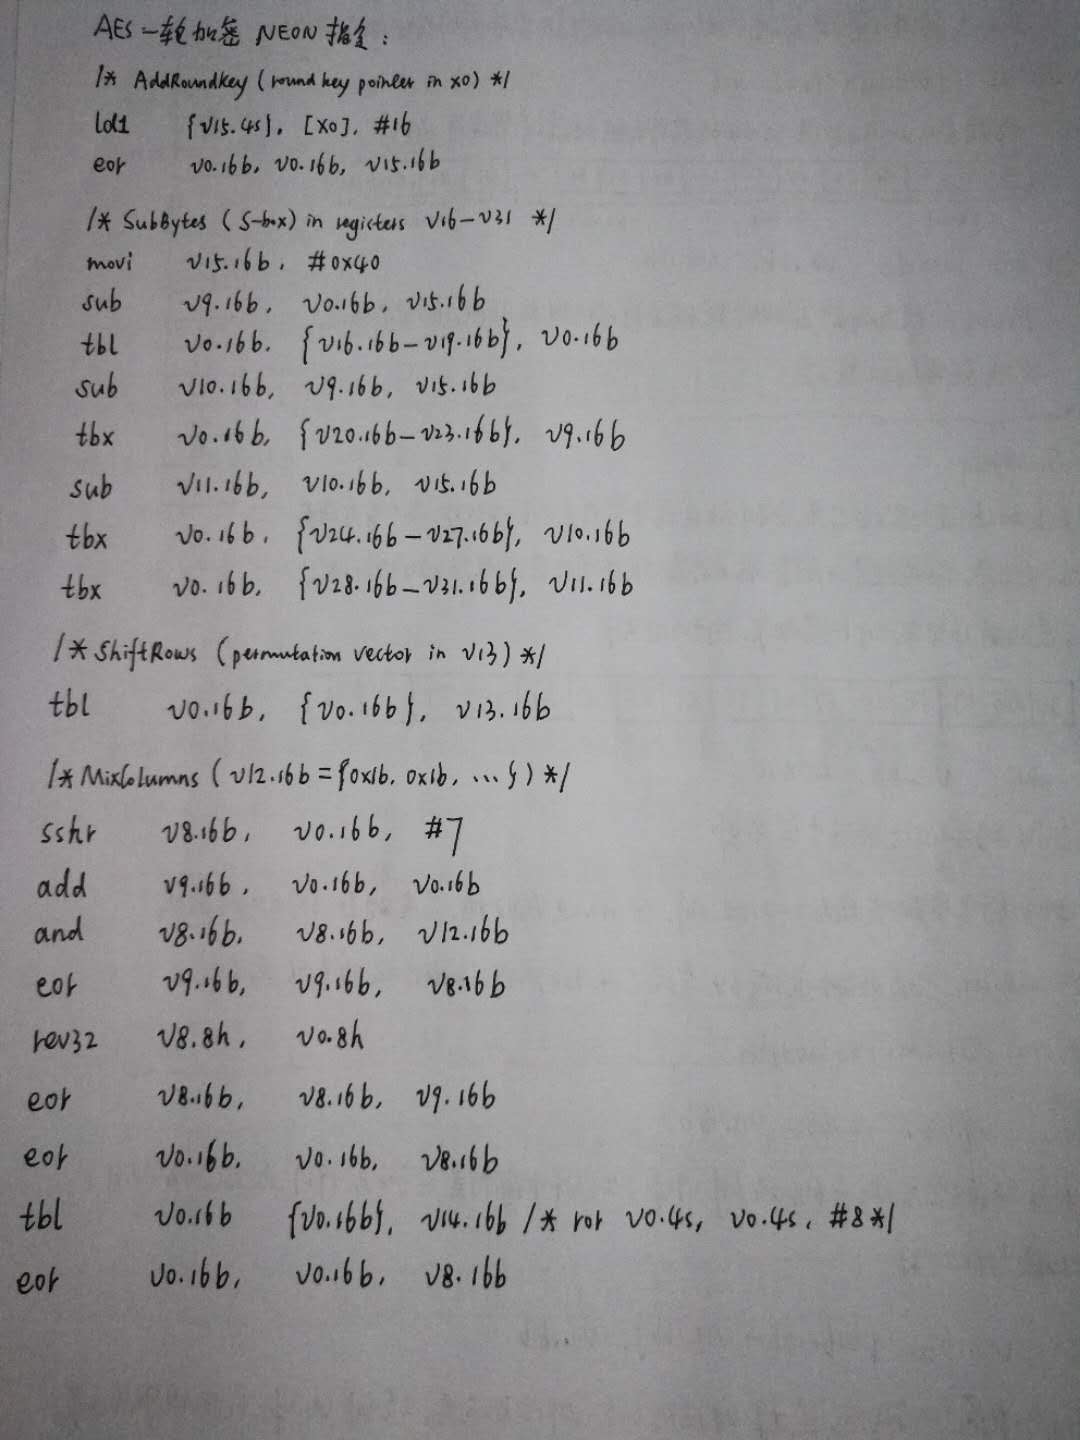 AES一轮加密 NEON 指令:
/* AddRoundkey (round key pointer in x0) */
ld1 {v15.4s}, [x0], #16
eor v0.16b, v0.16b, v15.16b
/* SubBytes (S-box) in registers v16-v31 */
movi v15.16b, #0x40
sub v9.16b, v0.16b, v15.16b
tbl v0.16b, {v16.16b-v19.16b}, v0.16b
sub v10.16b, v9.16b, v15.16b
tbx v0.16b, {v20.16b-v23.16b}, v9.16b
sub v11.16b, v10.16b, v15.16b
tbx v0.16b, {v24.16b-v27.16b}, v10.16b
tbx v0.16b, {v28.16b-v31.16b}, v11.16b
/* ShiftRows (permutation vector in v13) */
tbl v0.16b, {v0.16b}, v13.16b
/* MixColumns (v12.16b = {0x1b, 0x1b, ...}) */
sshr v8.16b, v0.16b, #7
add v9.16b, v0.16b, v0.16b
and v8.16b, v8.16b, v12.16b
eor v9.16b, v9.16b, v8.16b
rev32 v8.8h, v0.8h
eor v8.16b, v8.16b, v9.16b
eor v0.16b, v0.16b, v8.16b
tbl v0.16b {v0.16b}, v14.16b /* ror v0.4s, v0.4s, #8 */
eor v0.16b, v0.16b, v8.16b